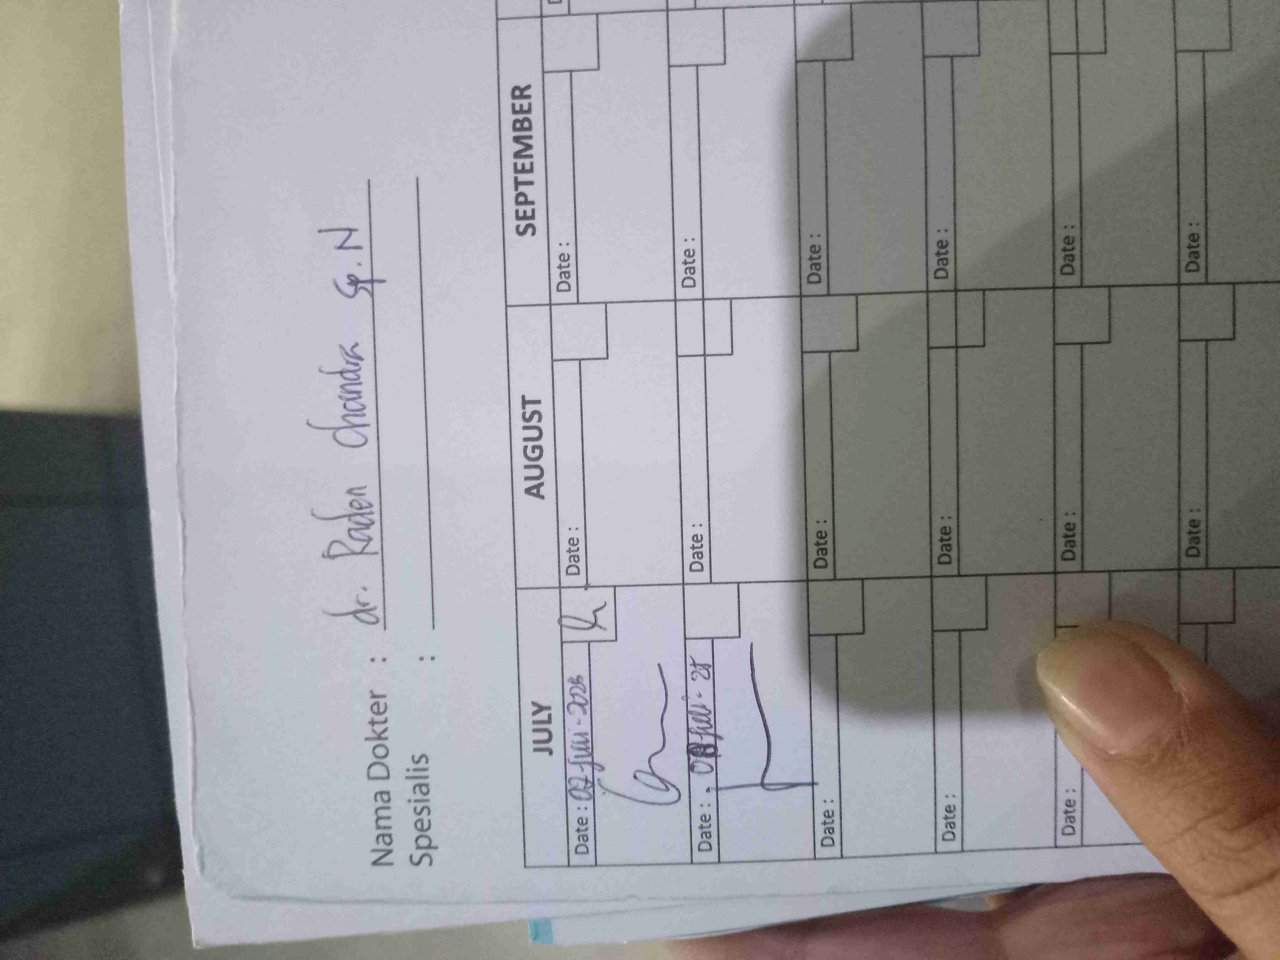 Nama Dokter : dr. Raden Chandra Sp. N
Spesialis :
JULY AUGUST SEPTEMBER
Date : 02-Juli-2025 Date : Date :
Date : Juli-25 Date : Date :
Date : Date : Date :
Date : Date : Date :
Date : Date : Date :
Date : Date :